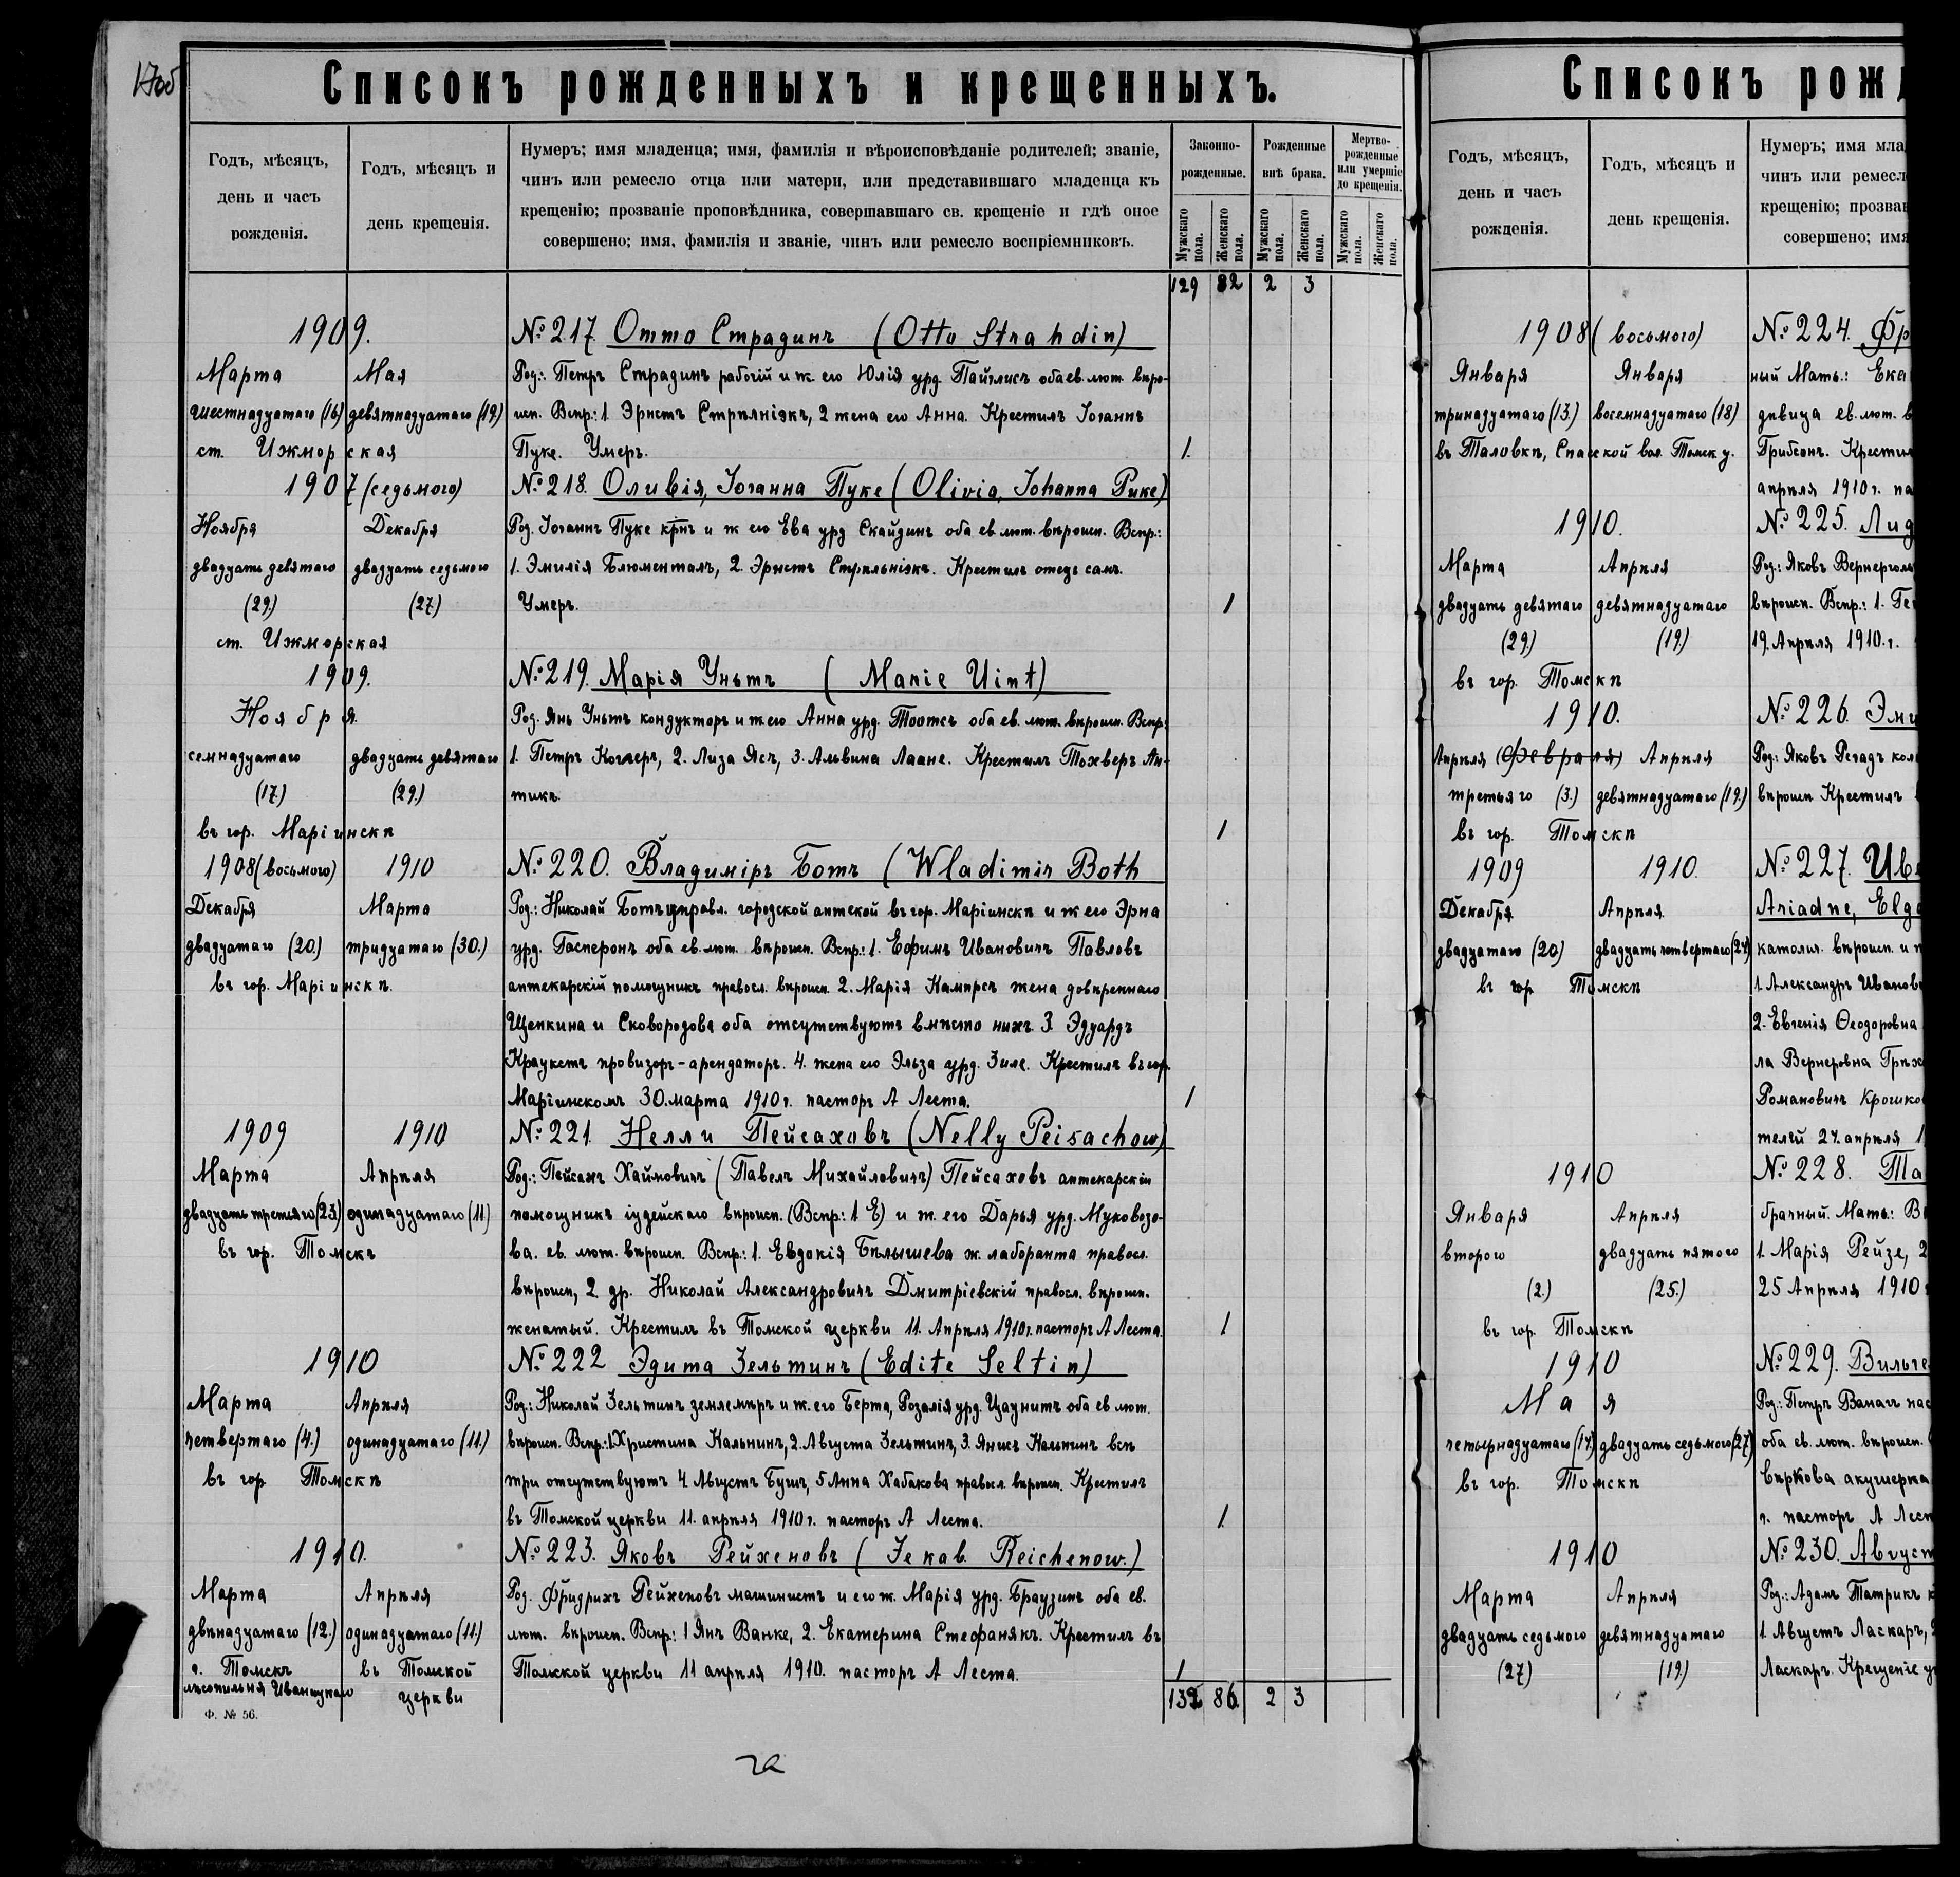 17об
Списокъ рожденныхъ и крещенныхъ.
Годъ, мѣсяцъ,
день и часъ
рожденія.
Годъ, мѣсяцъ и
день крещенія.
Нумеръ; имя младенца; имя, фамилія и вѣроисповѣданіе родителей; званіе,
чинъ или ремесло отца или матери, или представившаго младенца къ
крещенію; прозваніе проповѣдника, совершавшаго св. крещеніе и гдѣ оное
совершено; имя, фамилія и званіе, чинъ или ремесло воспріемниковъ.
Законно-
рожденные.
Рожденные
внѣ брака.
Мертво-
рожденные
или умершіе
до крещенія.
Мужскаго пола.
Женскаго пола.
Мужскаго пола.
Женскаго пола.
Мужскаго пола.
Женскаго пола.
129 82 2 3
1909. №217 Отто Страдинъ (Otto Strahdin)
Марта Мая Род.: Петръ Страдинъ рабочій и ж. его Юлія урд. Пайглисъ оба ев. лют. вѣро-
шестнадцатаго (16) девятнадцатаго (19) исп. Вспр.: 1. Эрнстъ Стрѣлніэкъ, 2 жена его Анна. Крестилъ Іоганнъ
ст. Ижморская Пуке. Умеръ. 1.
1907 (седьмого) №218. Оливія, Іоганна Пуке (Olivia, Johanna Puke)
Ноября Декабря Род. Іоганнъ Пуке крнъ и ж его Ева урд Скайдинъ оба ев. лют. вѣроисп. Вспр.:
двадцать девятаго двадцать седьмого 1. Эмилія Блюменталъ, 2. Эрнстъ Стрѣльніэкъ. Крестилъ отецъ самъ.
(29.) (27.) Умеръ. 1
ст. Ижморская
1909. №219. Марія Уньтъ (Marie Uint)
Ноября. Род. Янъ Уньтъ кондукторъ и ж его Анна урд. Тоотсъ оба ев. лют. вѣроисп. Вспр:
семнадцатаго двадцать девятаго 1. Петръ Коглеръ, 2. Лиза Ясъ, 3. Альвина Лаане. Крестилъ Тохверъ Ан-
(17.) (29.) тикъ.
въ гор. Маріинскѣ 1
1908 (восьмого) 1910 №220. Владиміръ Ботъ (Wladimir Both
Декабря Марта Род.: Николай Ботъ управл. городской аптекой въ гор. Маріинскѣ и ж его Эрна
двадцатаго (20.) тридцатаго (30.) урд. Гасперонъ оба ев. лют. вѣроисп. Вспр.: 1. Ефимъ Ивановичъ Павловъ
въ гор. Маріинскѣ. аптекарскій помощникъ правосл. вѣроисп. 2. Марія Кампрсъ жена довѣреннаго
Щепкина и Сковородова оба отсутствуютъ вмѣсто нихъ 3. Эдуардъ
Краукстъ провизоръ-арендаторъ. 4. жена его Эльза урд. Зиле. Крестилъ въ гор.
Маріинскомъ 30. марта 1910 г. пасторъ А Леста. 1
1909 1910 №221 Нелли Пейсаховъ (Nelly Peisachow)
Марта Апрѣля Род.: Пейсахъ Хаймовичъ (Павелъ Михайловичъ) Пейсаховъ аптекарскій
двадцать третьяго (23) одинадцатаго (11.) помощникъ іудейскаго вѣроисп. (Вспр.: 1 Е) и ж. его Дарья урд. Муковозо-
въ гор. Томскъ ва. ев. лют. вѣроисп. Вспр.: 1. Евдокія Бѣлышева ж. лаборанта правосл.
вѣроисп, 2. др. Николай Александровичъ Дмитріевскій правосл. вѣроисп.
женатый. Крестилъ въ Томской церкви 11. Апрѣля 1910 г. пасторъ А Леста. 1
1910 №222 Эдита Зельтинъ (Edite Seltin)
Марта Апрѣля Род.: Николай Зельтинъ землемѣръ и ж. его Берта, Розалія урд. Цаунитъ оба ев лют.
четвертаго (4.) одинадцатаго (11.) вѣроисп. Вспр.: 1. Христина Кальнинъ, 2. Августа Зельтинъ, 3. Янисъ Кальнинъ всѣ
въ гор Томскѣ три отсутствуютъ 4 Августъ Бушъ, 5 Анна Хабакова правосл. вѣроисп. Крестилъ
въ Томской церкви 11. апрѣля 1910 г. пасторъ А Леста. 1.
1910. №223. Яковъ Рейхеновъ (Jekab Reichenow.)
Марта Апрѣля Род. Фридрихъ Рейхеновъ машинистъ и его ж. Марія урд. Браузинъ оба ев.
двѣнадцатаго (12.) одинадцатаго (11.) лют. вѣроисп. Вспр.: 1 Янъ Ванке, 2. Екатерина Стефанякъ. Крестилъ въ
г. Томскъ въ Томской Томской церкви 11 апрѣля 1910. пасторъ А Леста. 1
лѣсопильня Иваницкаго церкви 132 86. 2 3
Ф. № 56.
Списокъ рожд
Годъ, мѣсяцъ,
день и часъ
рожденія.
Годъ, мѣсяцъ и
день крещенія.
Нумеръ; имя мла
чинъ или ремесл
крещенію; прозван
совершено; имя
1908 (восьмого) №224. Фр
Января Января ный Мать.: Ека
тринадцатаго (13.) восемнадцатаго (18) дѣвица ев. лют. в
въ Таловкѣ, Спасской вол. Томск. у. Грибсонъ. Крестил
апрѣля 1910 г. па
1910. №225. Лид
Марта Апрѣля Род.: Яковъ Вернерголь
двадцать девятаго девятнадцатаго вѣроисп. Вспр.: 1. Ге
(29.) (19.) 19. Апрѣля 1910. г.
въ гор. Томскѣ
1910. №226. Эми
Апрѣля (Февраля) Апрѣля Род.: Яковъ Регадъ кол
третьяго (3.) девятнадцатаго (19.) вѣроисп Крестилъ
въ гор. Томскѣ
1909 1910. №227. Иве
Декабря. Апрѣля. Ariadne, Elga
двадцатаго (20) двадцать четвертаго (24) католич. вѣроисп. и
въ гор Томскѣ 1. Александръ Иванов
2. Евгенія Ѳеодоровна
ла Вернеровна Грѣх
Романовичъ Крошко
телей 24. апрѣля 1
1910 №228. Та
Января Апрѣля брачный. Мать.: В
второго двадцать пятого 1. Марія Рейзе, 2
(2.) (25.) 25 Апрѣля 1910
въ гор. Томскѣ
1910 №229. Вильге
Мая Род.: Петръ Ванагъ
четырнадцатаго (14.) двадцать седьмого (27) оба ев. лют. вѣроисп.
въ гор. Томскѣ Вѣркова акушерка
г. пасторъ А Лест
1910 №230. Август
Марта Апрѣля Род.: Адамъ Татрикъ
двадцать седьмого девятнадцатаго 1. Августъ Ласкаръ, 2
(27) (19.) Ласкаръ. Крещеніе